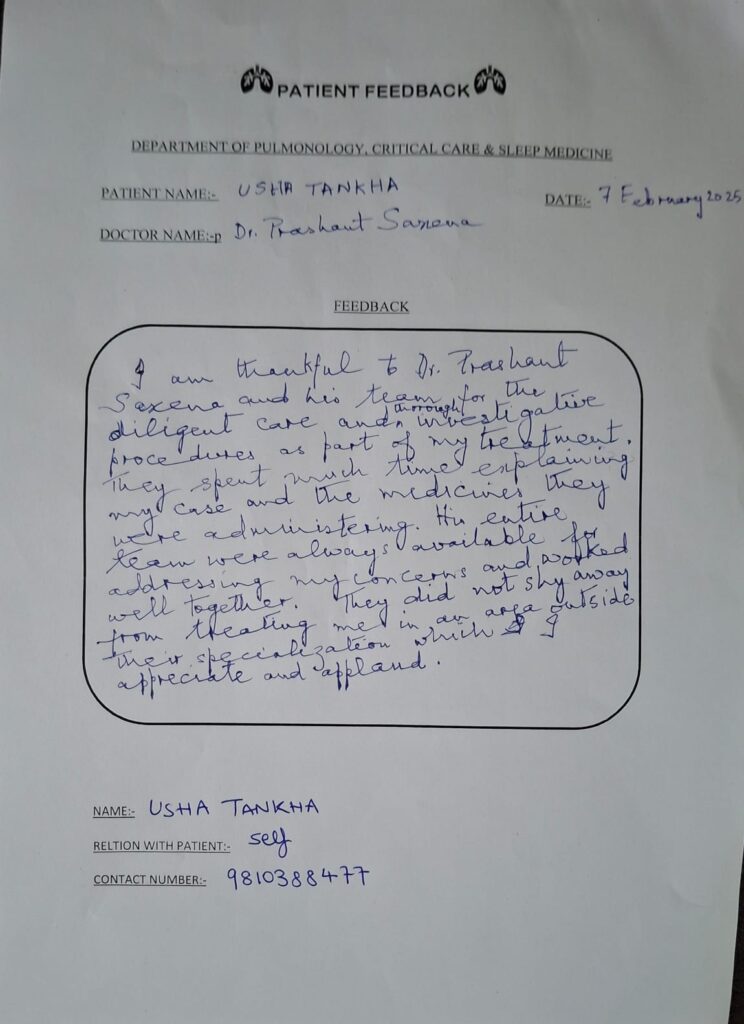 PATIENT FEEDBACK
DEPARTMENT OF PULMONOLOGY, CRITICAL CARE & SLEEP MEDICINE
PATIENT NAME:- USHA TANKHA
DATE:- 7 February 2025
DOCTOR NAME:-p Dr. Prashant Saxena
FEEDBACK
I am thankful to Dr. Prashant
Saxena and his team for the
diligent care and thorough investigative
procedures as part of my treatment.
They spent much time explaining
my case and the medicines they
were administering. His entire
team were always available for
addressing my concerns and worked
well together. They did not shy away
from treating me in an area outside
their specialization which I
appreciate and applaud.
NAME:- USHA TANKHA
RELTION WITH PATIENT:- self
CONTACT NUMBER:- 9810388477